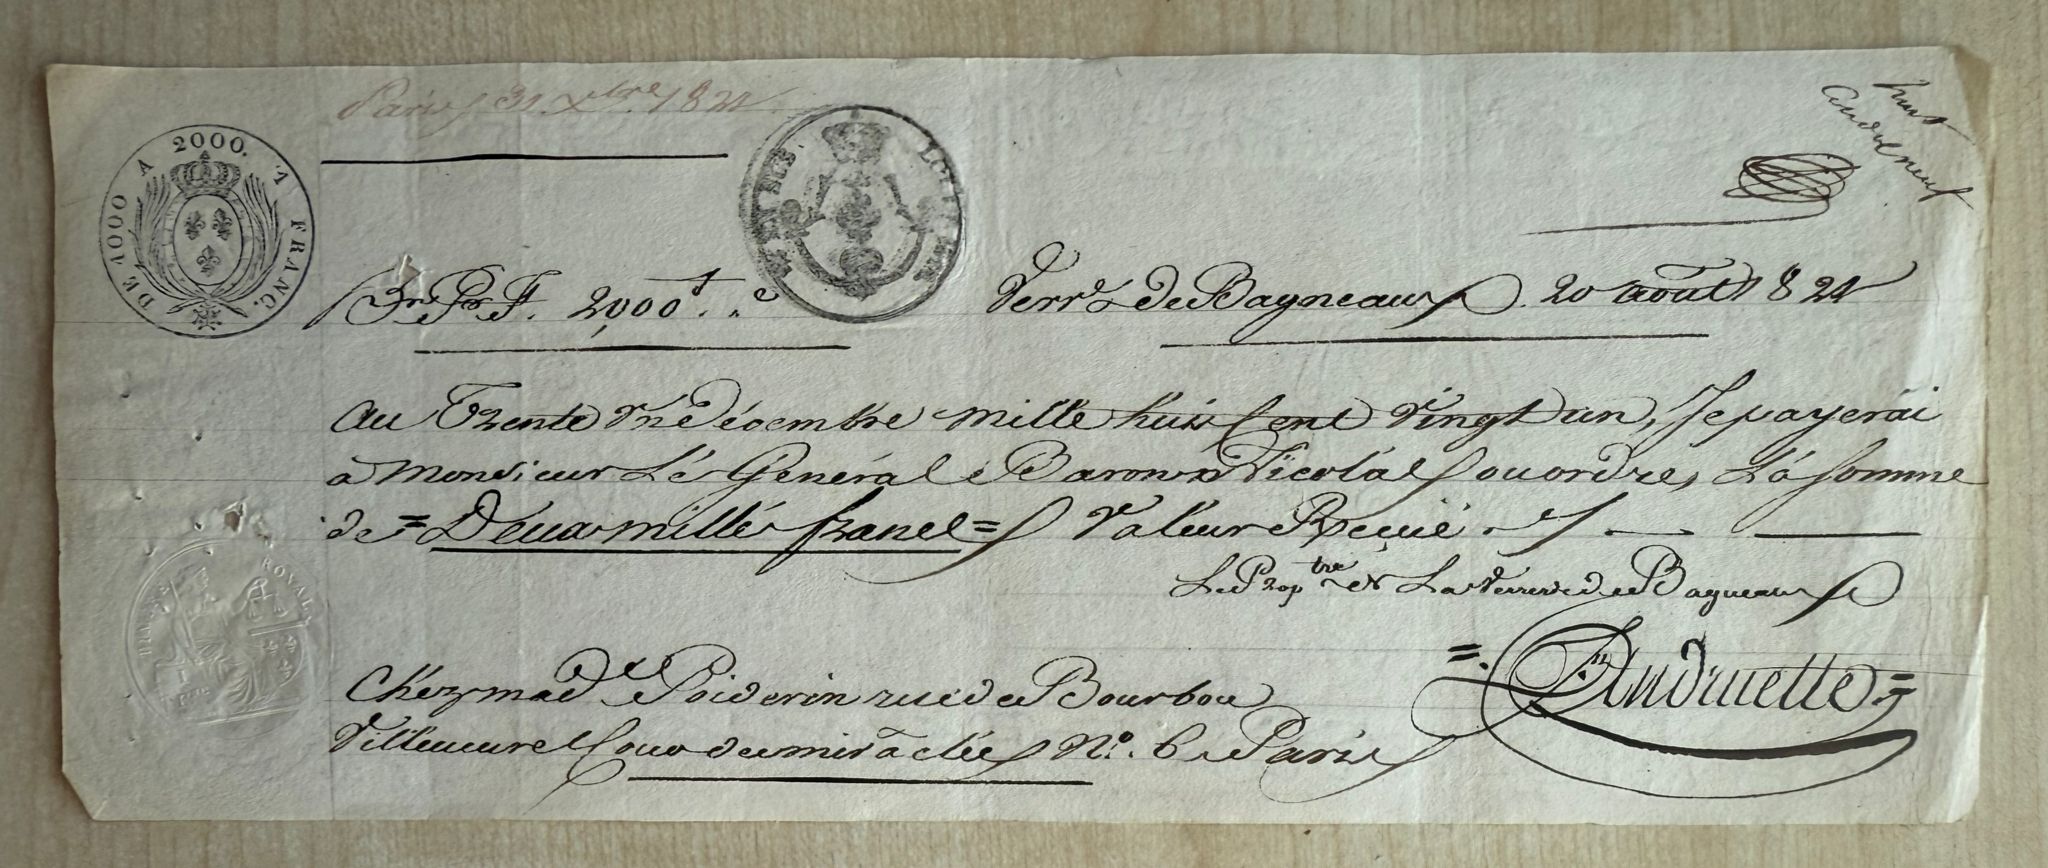 Paris 31 Xbre 1821
DE 1000 A 2000. 1 FRANC.
huit
cent neuf
Bn Pr F. 2,000 f. "c
Verrie de Bagneaux 20 août 1821
au Trente Un Décembre mille huis Cent Vingt un, Je payerai
a Monsieur Lé Général Baron Nicolas ou ordre, Lá Somme
de = Deux millé francs = Valeur Reçuë
TIMBRE ROYAL
Le Proptre de La Verrerie de Bagneaux
=. Andruette =
Chéz mad e Poiderin rue de Bourbon
Villeneuve Cour des miràcles No. 6 Paris